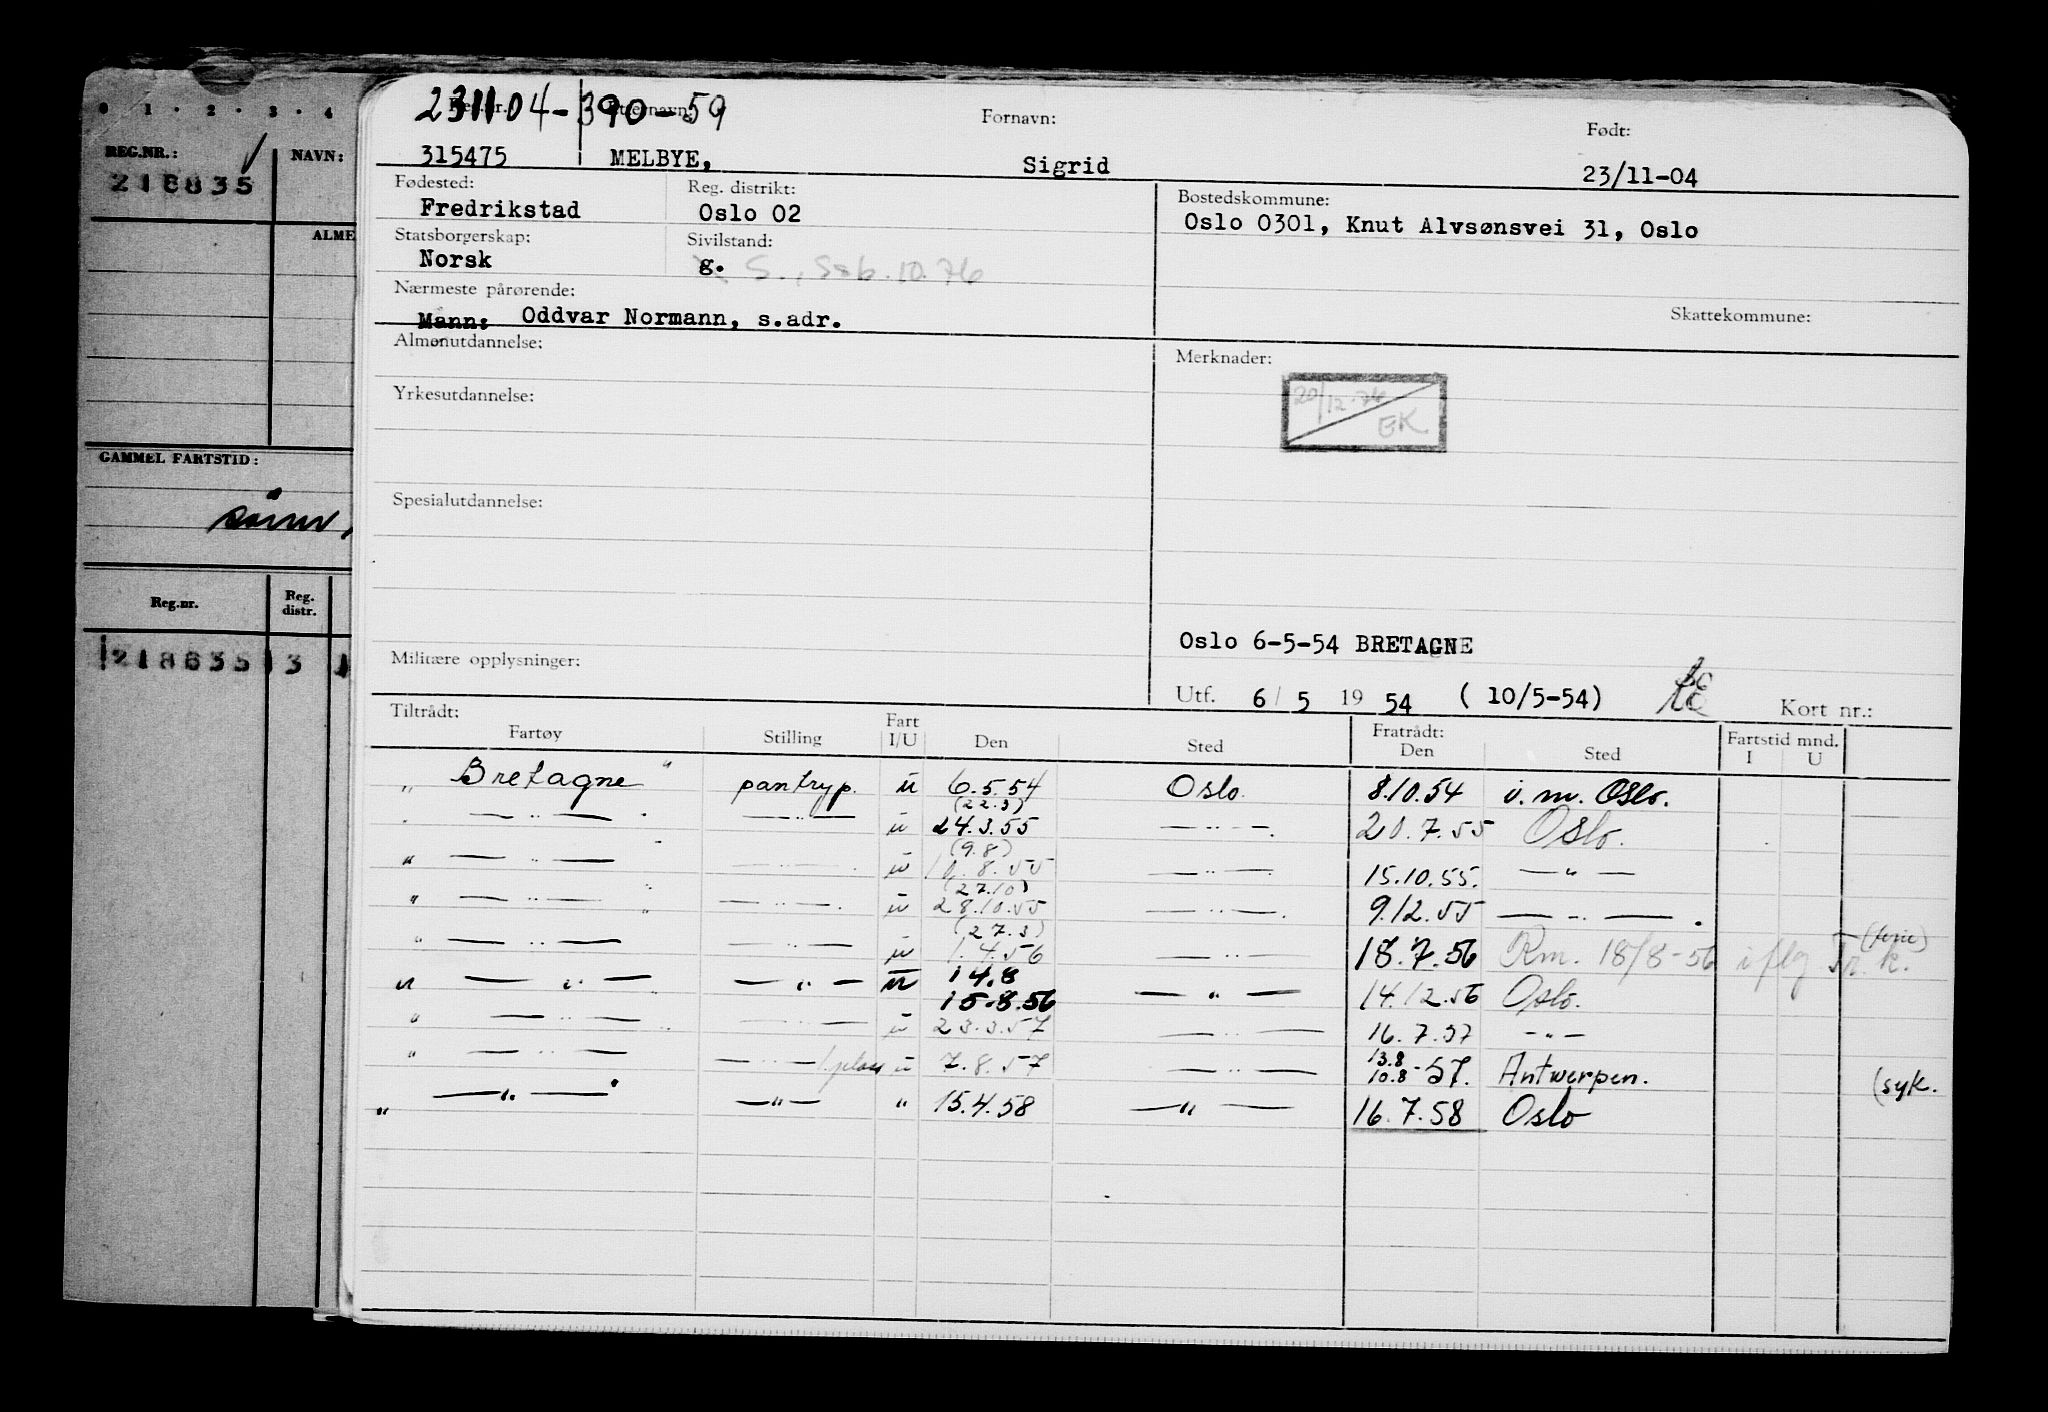 0 1 . 2 . 3 . 4
REG.NR.: NAVN:
218835
ALME
GAMMEL FARTSTID:
Reg.nr. Reg. distr.
218835 3
231104-390-59
Fornavn: Født:
315475 MELBYE, Sigrid 23/11-04
Fødested: Reg. distrikt: Bostedskommune:
Fredrikstad Oslo 02 Oslo 0301, Knut Alvsønsvei 31, Oslo
Statsborgerskap: Sivilstand:
Norsk g. S., 10.76
Nærmeste pårørende: Skattekommune:
Mann: Oddvar Normann, s.adr.
Almenutdannelse: Merknader:
20/12-76 EK
Yrkesutdannelse:
Spesialutdannelse:
Oslo 6-5-54 BRETAGNE
Militære opplysninger:
Utf. 6/5 1954 (10/5-54) Kort nr.:
Tiltrådt: Fratrådt: Fartstid mnd.
Fartøy Stilling Fart I/U Den Sted Den Sted I U
" Bretagne " pantryp. u 6.5.54 Oslo. 8.10.54 v.m. Oslo.
" — " — " — " — u (22.3) 24.3.55 — " —. 20.7.55 Oslo.
" — " — " — " — u (9.8) 10.8.55 — " — 15.10.55. — " —
" — " — " — " — u (27.10) 28.10.55 — " —. 9.12.55 — " — .
" — " — — " — u (27.3) 1.4.56 — " — 18.7.56 Rm. 18/8-56 i flg Tr.k. (ferie)
" — " — — " — u 14.8 15.8.56 — " — 14.12.56 Oslo.
" — " — — " — u 23.3.57 — " — 16.7.57 — " —
" — " — — " — u 7.8.57 — " — 13.8 10.8-57. Antwerpen. (syk.
" — " — " — " — " 15.4.58 — " — 16.7.58 Oslo